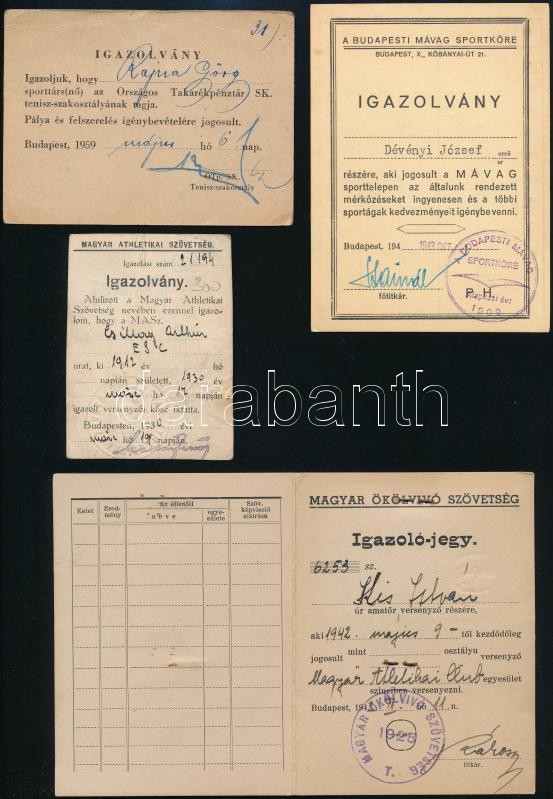 31).
IGAZOLVÁNY
Igazoljuk, hogy Rajna Görg
sporttárs(nő) az Országos Takarékpénztár SK.
tenisz-szakosztályának tagja.
Pálya és felszerelés igénybevételére jogosult.
Budapest, 1959 május hó 6 nap.
OTP. SK.
Tenisz-szakosztály
A BUDAPESTI MÁVAG SPORTKÖRE
BUDAPEST, X., KŐBÁNYAI-ÚT 21.
IGAZOLVÁNY
Dévényi József
úr
részére, aki jogosult a MÁVAG
sporttelepen az általunk rendezett
mérkőzéseket ingyenesen és a többi
sportágak kedvezményeit igénybevenni.
Budapest, 194 1943 OKT
főtitkár.
P. H.
A BUDAPESTI MÁVAG
SPORTKÖRE
Alapítási év:
1909
MAGYAR ATHLETIKAI SZÖVETSÉG.
Igazolási szám 21194
Igazolvány. 300
Alulirott a Magyar Athletikai
Szövetség nevében ezennel igazo-
lom, hogy a MASz.
Csillag Arthúr
ESC
urat, ki 1912 év hó
napján született, 1930 év
márc hó 17 napján
igazolt versenyzői közé iktatta.
Budapesten, 1930 évi
márc hó 19 napján.
Kelet
Ered-
mény
Az ellenfél
neve
egye-
sülete
Szöv.
képviselő
aláírása
MAGYAR ÖKÖLVIVÓ SZÖVETSÉG
Igazoló-jegy.
6253 sz.
Kis István
úr amatőr versenyző részére,
aki 1942. május 9-től kezdődőleg
jogosult mint osztályu versenyző
Magyar Atletikai Club egyesület
színeiben versenyezni.
Budapest, 194 hó 11 n.
MAGYAR ÖKÖLVIVÓ SZÖVETSÉG
1925
T.
titkár.
darabanth
www.darabanth.com